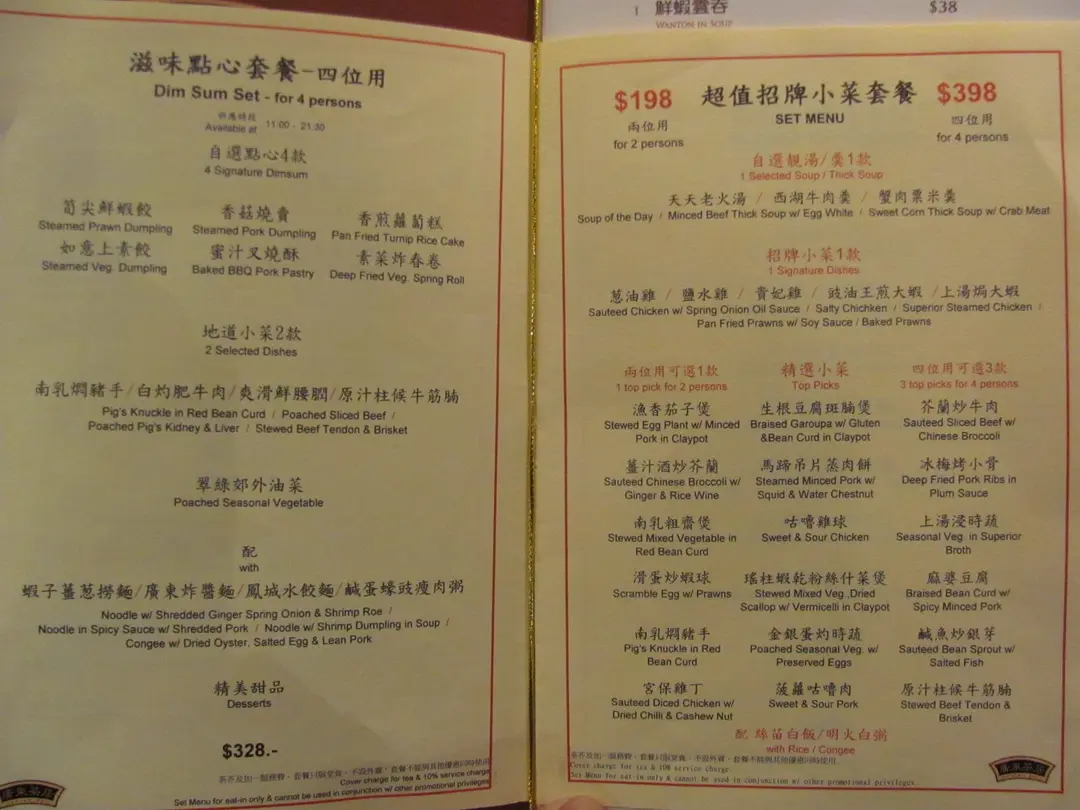 滋味點心套餐-四位用
Dim Sum Set - for 4 persons
供應時段
Available at 11:00 - 21:30
自選點心4款
4 Signature Dimsum
筍尖鮮蝦餃 香菇燒賣 香煎蘿蔔糕
Steamed Prawn Dumpling Steamed Pork Dumpling Pan Fried Turnip Rice Cake
如意上素餃 蜜汁叉燒酥 素菜炸春卷
Steamed Veg. Dumpling Baked BBQ Pork Pastry Deep Fried Veg. Spring Roll
地道小菜2款
2 Selected Dishes
南乳燜豬手/白灼肥牛肉/爽滑鮮腰膶/原汁柱候牛筋腩
Pig's Knuckle in Red Bean Curd / Poached Sliced Beef /
Poached Pig's Kidney & Liver / Stewed Beef Tendon & Brisket
翠綠郊外油菜
Poached Seasonal Vegetable
配
with
蝦子薑蔥撈麵/廣東炸醬麵/鳳城水餃麵/鹹蛋蠔豉瘦肉粥
Noodle w/ Shredded Ginger Spring Onion & Shrimp Roe /
Noodle in Spicy Sauce w/ Shredded Pork / Noodle w/ Shrimp Dumpling in Soup /
Congee w/ Dried Oyster, Salted Egg & Lean Pork
精美甜品
Desserts
$328.-
茶芥及加一服務費，套餐只限堂食，不設外賣，套餐不能與其他優惠同時使用
Cover charge for tea & 10% service charge
Set Menu for eat-in only & cannot be used in conjunction w/ other promotional privileges
1 鮮蝦雲吞 $38
Wanton in Soup
$198 超值招牌小菜套餐 $398
兩位用 SET MENU 四位用
for 2 persons for 4 persons
自選靚湯/羹1款
1 Selected Soup / Thick Soup
天天老火湯 / 西湖牛肉羹 / 蟹肉粟米羹
Soup of the Day / Minced Beef Thick Soup w/ Egg White / Sweet Corn Thick Soup w/ Crab Meat
招牌小菜1款
1 Signature Dishes
蔥油雞 / 鹽水雞 / 貴妃雞 / 豉油王煎大蝦 /上湯焗大蝦
Sauteed Chicken w/ Spring Onion Oil Sauce / Salty Chichken / Superior Steamed Chicken /
Pan Fried Prawns w/ Soy Sauce / Baked Prawns
兩位用可選1款 精選小菜 四位用可選3款
1 top pick for 2 persons Top Picks 3 top picks for 4 persons
漁香茄子煲 生根豆腐斑腩煲 芥蘭炒牛肉
Stewed Egg Plant w/ Minced Braised Garoupa w/ Gluten Sauteed Sliced Beef w/
Pork in Claypot &Bean Curd in Claypot Chinese Broccoli
薑汁酒炒芥蘭 馬蹄吊片蒸肉餅 冰梅烤小骨
Sauteed Chinese Broccoli w/ Steamed Minced Pork w/ Deep Fried Pork Ribs in
Ginger & Rice Wine Squid & Water Chestnut Plum Sauce
南乳粗齋煲 咕嚕雞球 上湯浸時蔬
Stewed Mixed Vegetable in Sweet & Sour Chicken Seasonal Veg. in Superior
Red Bean Curd Broth
滑蛋炒蝦球 瑤柱蝦乾粉絲什菜煲 麻婆豆腐
Scramble Egg w/ Prawns Stewed Mixed Veg ,Dried Braised Bean Curd w/
Scallop w/ Vermicelli in Claypot Spicy Minced Pork
南乳燜豬手 金銀蛋灼時蔬 鹹魚炒銀芽
Pig's Knuckle in Red Poached Seasonal Veg. w/ Sauteed Bean Sprout w/
Bean Curd Preserved Eggs Salted Fish
宮保雞丁 菠蘿咕嚕肉 原汁柱候牛筋腩
Sauteed Diced Chicken w/ Sweet & Sour Pork Stewed Beef Tendon &
Dried Chilli & Cashew Nut Brisket
配 絲苗白飯/明火白粥
with Rice / Congee
茶芥及加一服務費，套餐只限堂食，不設外賣，套餐不能與其他優惠同時使用
Cover charge for tea & 10% service charge.
Set Menu for eat-in only & cannot be used in conjunction w/ other promotional privileges